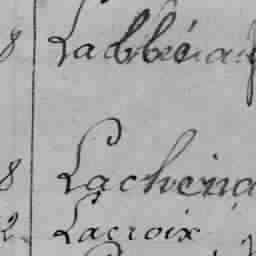 8 Labbé
8 Lachena
2 Lacroix